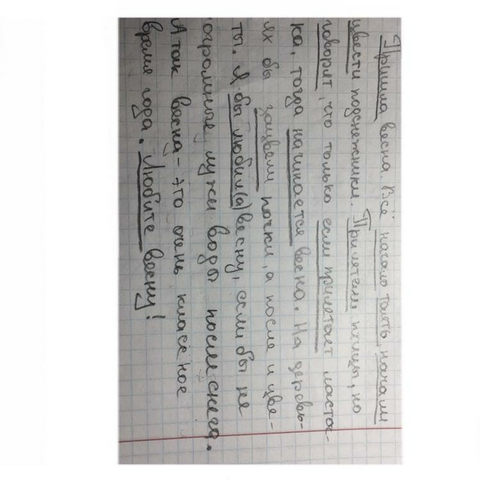 Пришла весна. Всё начало таять, начали
цвести подснежники. Прилетели птицы, но
говорят, что только если прилетает ласточ-
ка, тогда начинается весна. На деревь-
ях бы зацвели почки, а после и цве-
ты. Я бы любил(а) весну, если бы не
огромные лужи воды после снега.
А так весна - это очень классное
время года. Любите весну!